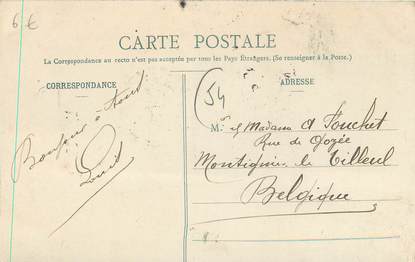 6 €
CARTE POSTALE
La Correspondance au recto n'est pas acceptée par tous les Pays Étrangers. (Se renseigner à la Poste.)
CORRESPONDANCE
Bonjour à tous
Louis
ADRESSE
54
M. et Madame A Fouchet
Rue de Gozée
Montignies le Tilleul
Belgique